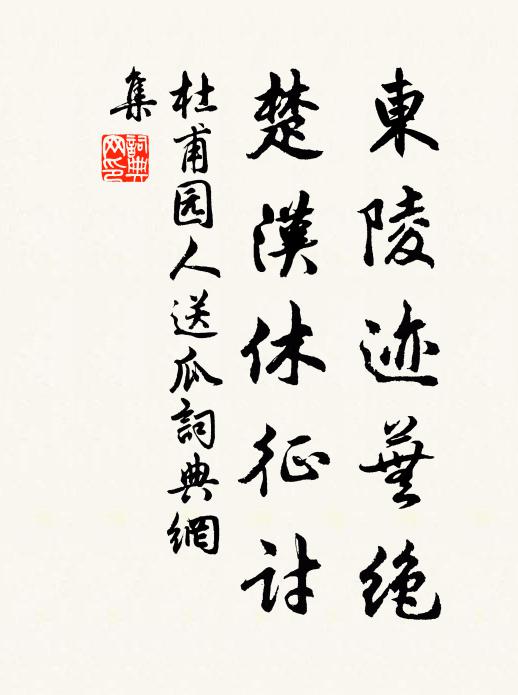 東陵迹蕪絶
楚漢休征討
杜甫园人送瓜詞典網
集
詞典
网印